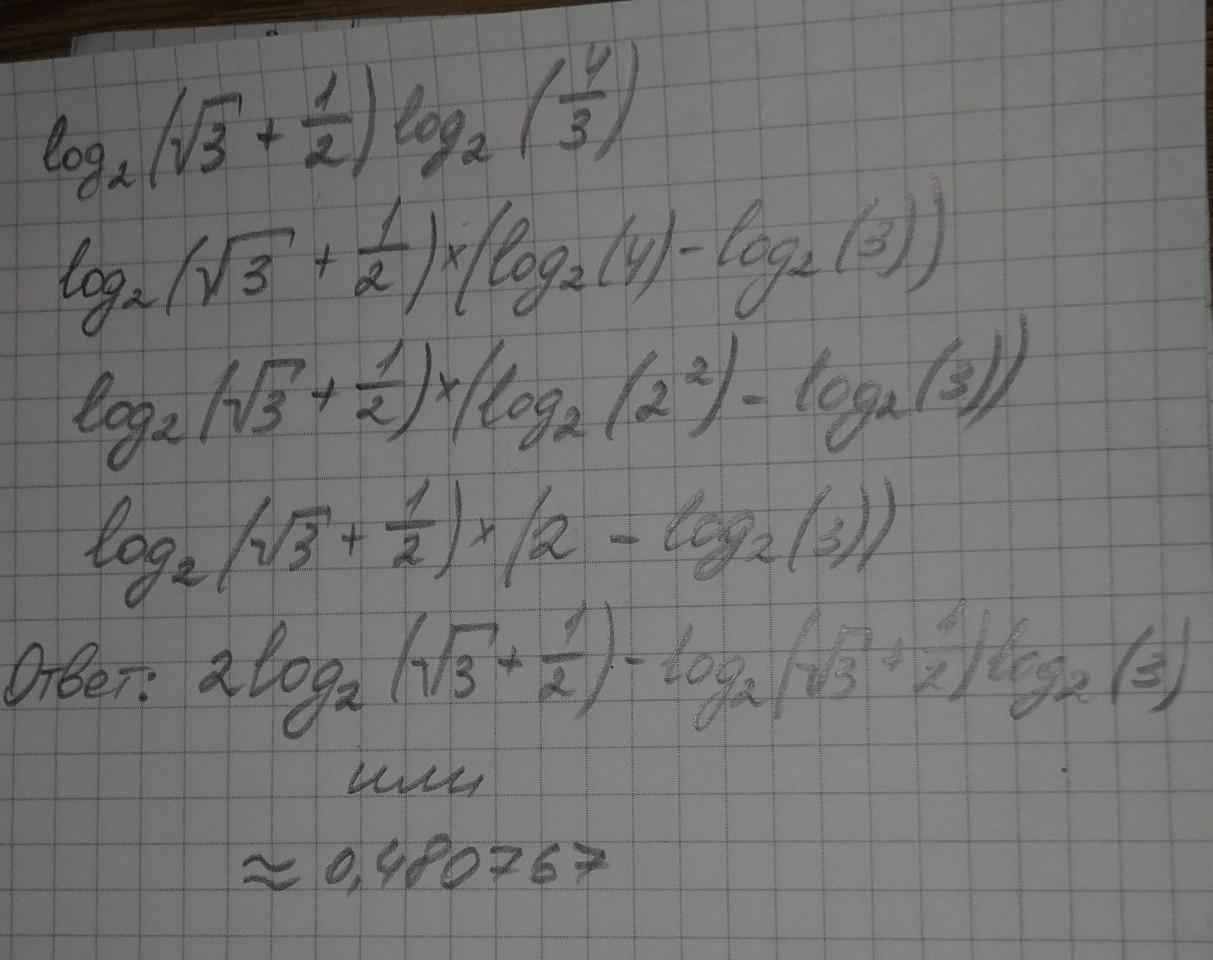 log₂(√3 + 1/2) log₂(4/3)
log₂(√3 + 1/2)×(log₂(4) - log₂(3))
log₂(√3 + 1/2)×(log₂(2²) - log₂(3))
log₂(√3 + 1/2)×(2 - log₂(3))
Ответ: 2log₂(√3 + 1/2) - log₂(√3 + 1/2)log₂(3)
или
≈ 0,480767